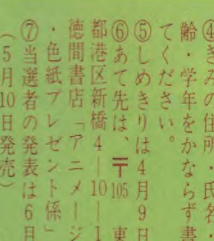 ④きみの住所・氏名・
齢・学年をかならず書
てください。
⑤しめきりは4月9日
⑥あて先は、〒105 東
都港区新橋4―10―1
徳間書店「アニメージ
・色紙プレゼント係」
⑦当選者の発表は6月
(5月10日発売)